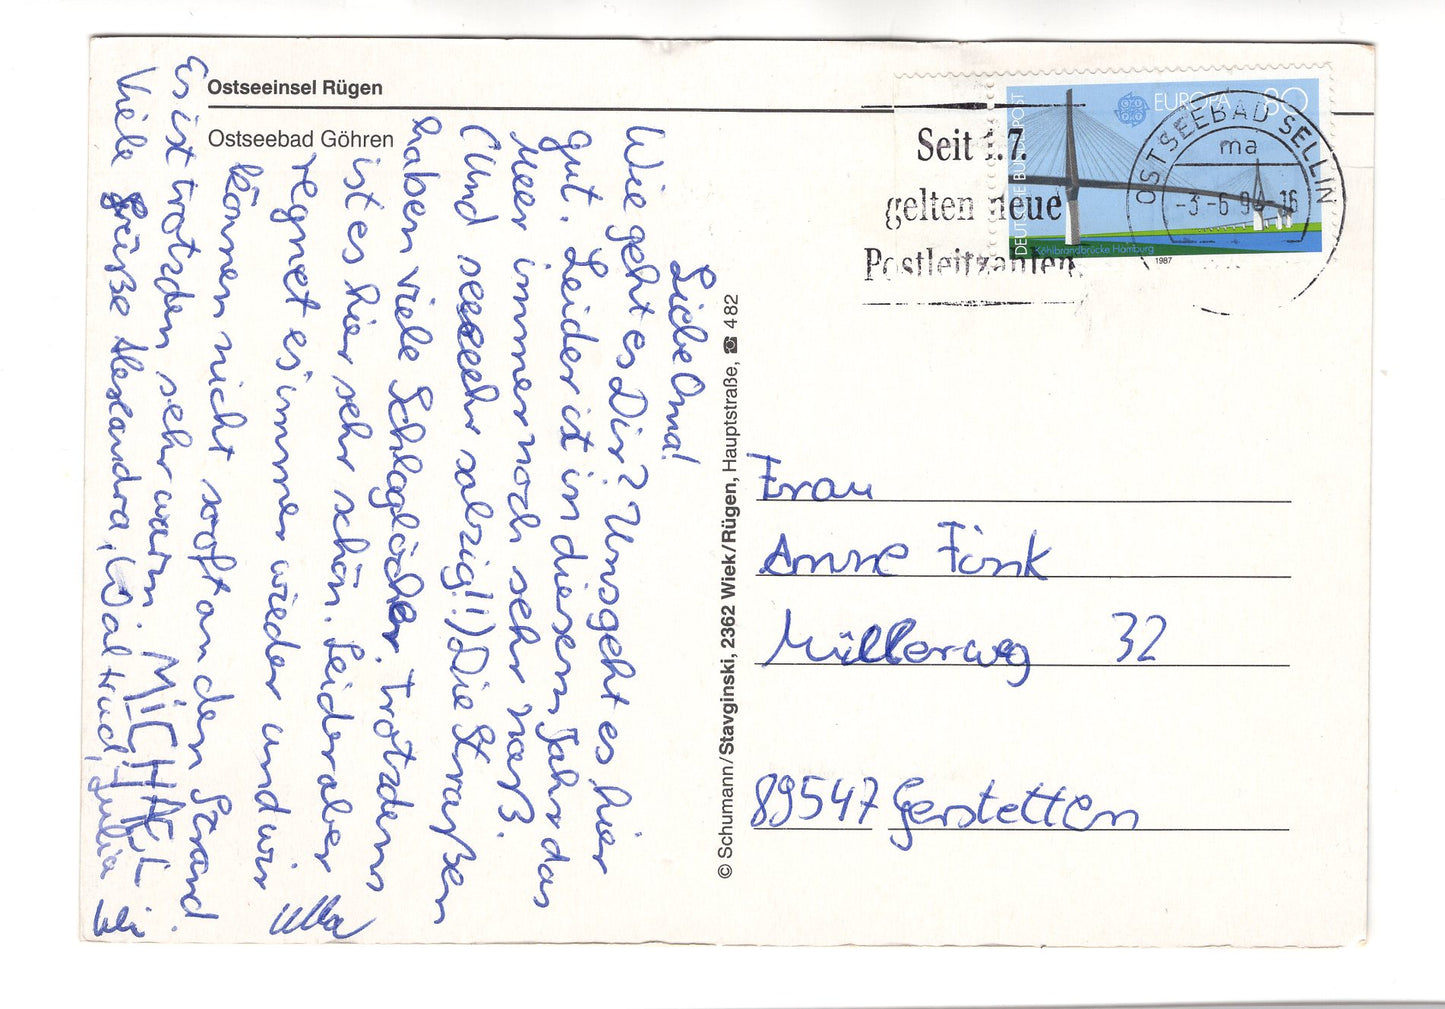 Ostseeinsel Rügen
Ostseebad Göhren
Liebe Oma!
Wie geht es Dir? Uns geht es hier
gut. Leider ist in diesem Jahr das
Meer immer noch sehr naß.
(Und seeeehr salzig!!) Die Straßen
haben viele Schlaglöcher. Trotzdem
ist es hier sehr schön. Leider aber
regnet es immer wieder und wir
können nicht so oft an den Strand.
Es ist trotzdem sehr warm.
Viele Grüße Alexandra, Waltraud, Julia
MICHAEL
Ulla
Uli
© Schumann/Stavginski, 2362 Wiek/Rügen, Hauptstraße, ☎ 482
Seit 1.7.
gelten neue
Postleitzahlen
DEUTSCHE BUNDESPOST
EUROPA 80
Köhlbrandbrücke Hamburg
1987
OSTSEEBAD SELLIN
ma
-3.-6.9 -16
Frau
Anne Fink
Müllerweg 32
89547 Gerstetten